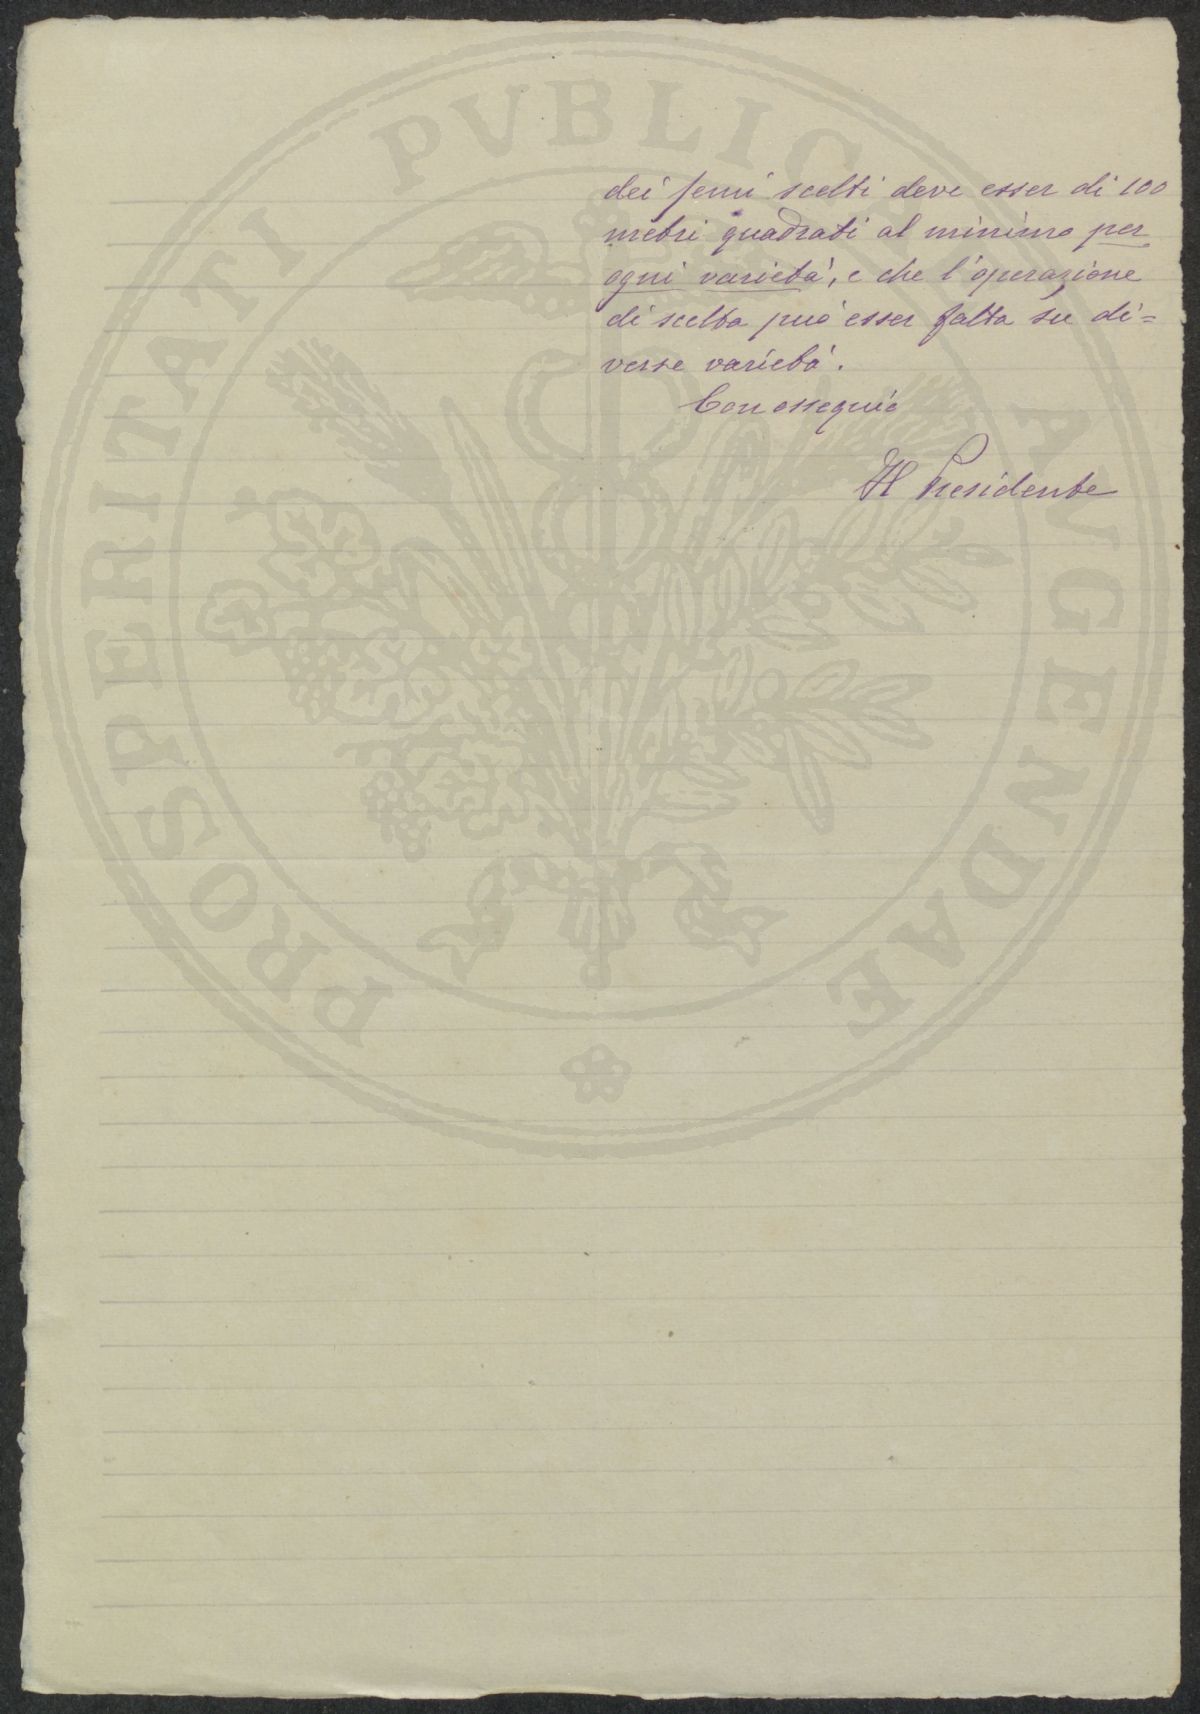 dei semi scelti deve esser di 100
metri quadrati al minimo per
ogni varietà, e che l'operazione
di scelta può esser fatta su di=
verse varietà.
Con ossequio
Il Presidente
PROSPERITATI PVBLICAE AVGENDAE